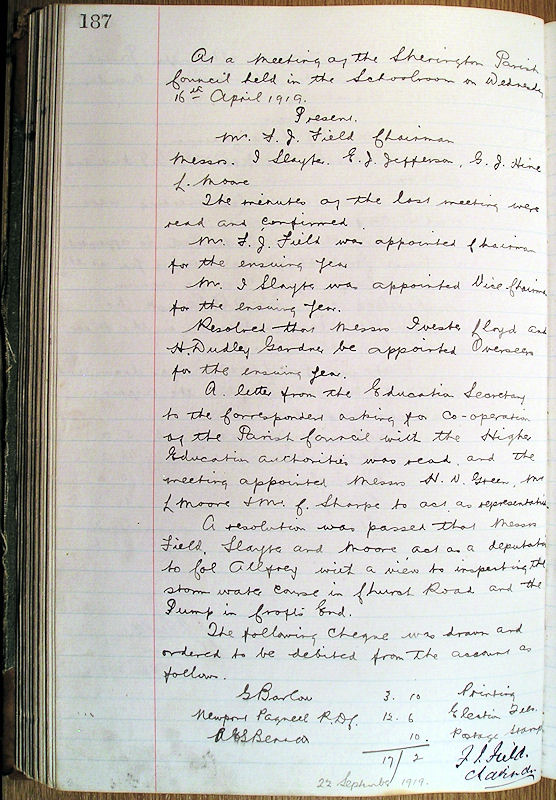 187
At a meeting of the Sherington Parish
Council held in the Schoolroom on Wednesday
16th April 1919.
Present.
Mr. F. J. Field Chairman
Messrs. I Slayte, E. J. Jefferson, G. J. Hine
L. Moore
The minutes of the last meeting were
read and confirmed.
Mr. F. J. Field was appointed Chairman
for the ensuing Year
Mr. I Slayte was appointed Vice Chairman
for the ensuing Year.
Resolved that Messrs Floyd and
H. Dudley Gardner be appointed Overseers
for the ensuing Year.
A letter from the Education Secretary
to the Correspondent asking for Co-operation
of the Parish Council with the Higher
Education Authorities was read and the
meeting appointed Messrs H. W. Green, Mr
L Moore & Mr. C. Sharpe to act as representatives
A resolution was passed that Messrs
Field, Slayte and Moore act as a deputation
to Col Allfrey with a view to inspecting the
storm water course in Church Road and the
Pump in Crofts End.
The following Cheque was drawn and
ordered to be debited from the account as
follows.
G Barlow 3. 10 Printing
Newport Pagnell R.D.C. 12. 6 Election Fees.
10. Postage Stamps
17/2 F. J. Field.
Chairman
22 September 1919.